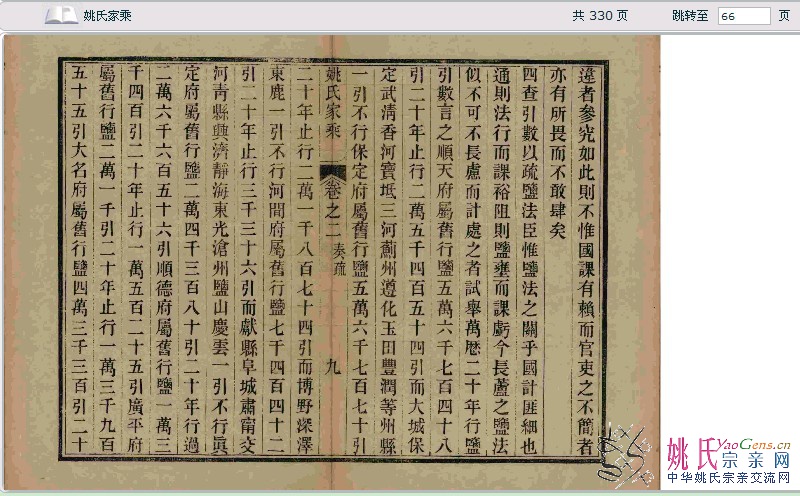 姚氏家乘
共 330 页
跳转至 66 页
違者參究如此則不惟國課有賴而官吏之不簡者
亦有所畏而不敢肆矣
四查引數以疏鹽法臣惟鹽法之關乎國計匪細也
通則法行而課裕阻則鹽壅而課虧今長蘆之鹽法
似不可不長慮而計處之者試舉萬曆二十年行鹽
引數言之順天府屬舊行鹽五萬六千七百四十八
引二十年止行二萬五千四百五十四引而大城保
定武清香河寶坻三河薊州遵化玉田豐潤等州縣
一引不行保定府屬舊行鹽五萬六千七百七十引
姚氏家乘
卷之二 奏疏
九
二十年止行二萬一千八百七十四引而博野深澤
東鹿一引不行河間府屬舊行鹽七千四百四十二
引二十年止行三千三十六引而獻縣阜城肅甯交
河青縣興濟靜海東光滄州鹽山慶雲一引不行眞
定府屬舊行鹽二萬四千三百八十引二十年行過
二萬六千六百五十六引順德府屬舊行鹽一萬三
千四百引二十年止行一萬五百二十五引廣平府
屬舊行鹽二萬一千引二十年止行一萬三千九百
五十五引大名府屬舊行鹽四萬三千三百引二十
姚氏YaoGens.cn
宗亲网
中华姚氏宗亲交流网